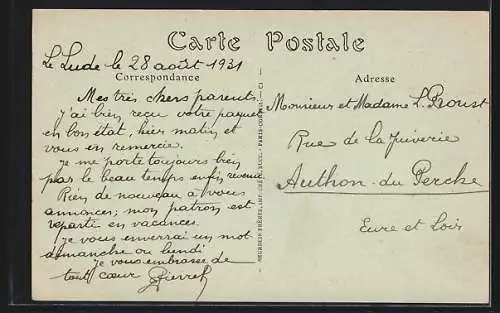 Carte Postale
Le Lude le 28 août 1931
Correspondance
Adresse
Mes très chers parents,
j'ai bien reçu votre paquet
en bon état, hier matin et
vous en remercie.
Je me porte toujours bien
par le beau temps enfin revenu
Rien de nouveau à vous
annoncer; mon patron est
reparti en vacances.
Je vous enverrai un mot
dimanche ou lundi
Je vous embrasse de
tout cœur Pierre
Monsieur et Madame L. Proust
Rue de la Juiverie
Authon-du-Perche
Eure et Loir